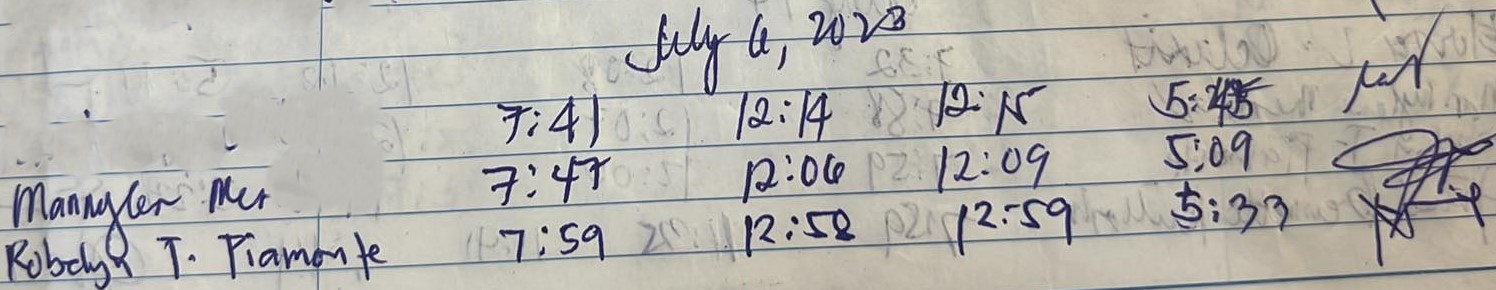 July 6, 2023
7:41 12:14 12:15 5:45
7:47 12:06 12:09 5:09
Mannyler Mer
Robelyn T. Piamonte 7:59 12:58 12:59 5:33